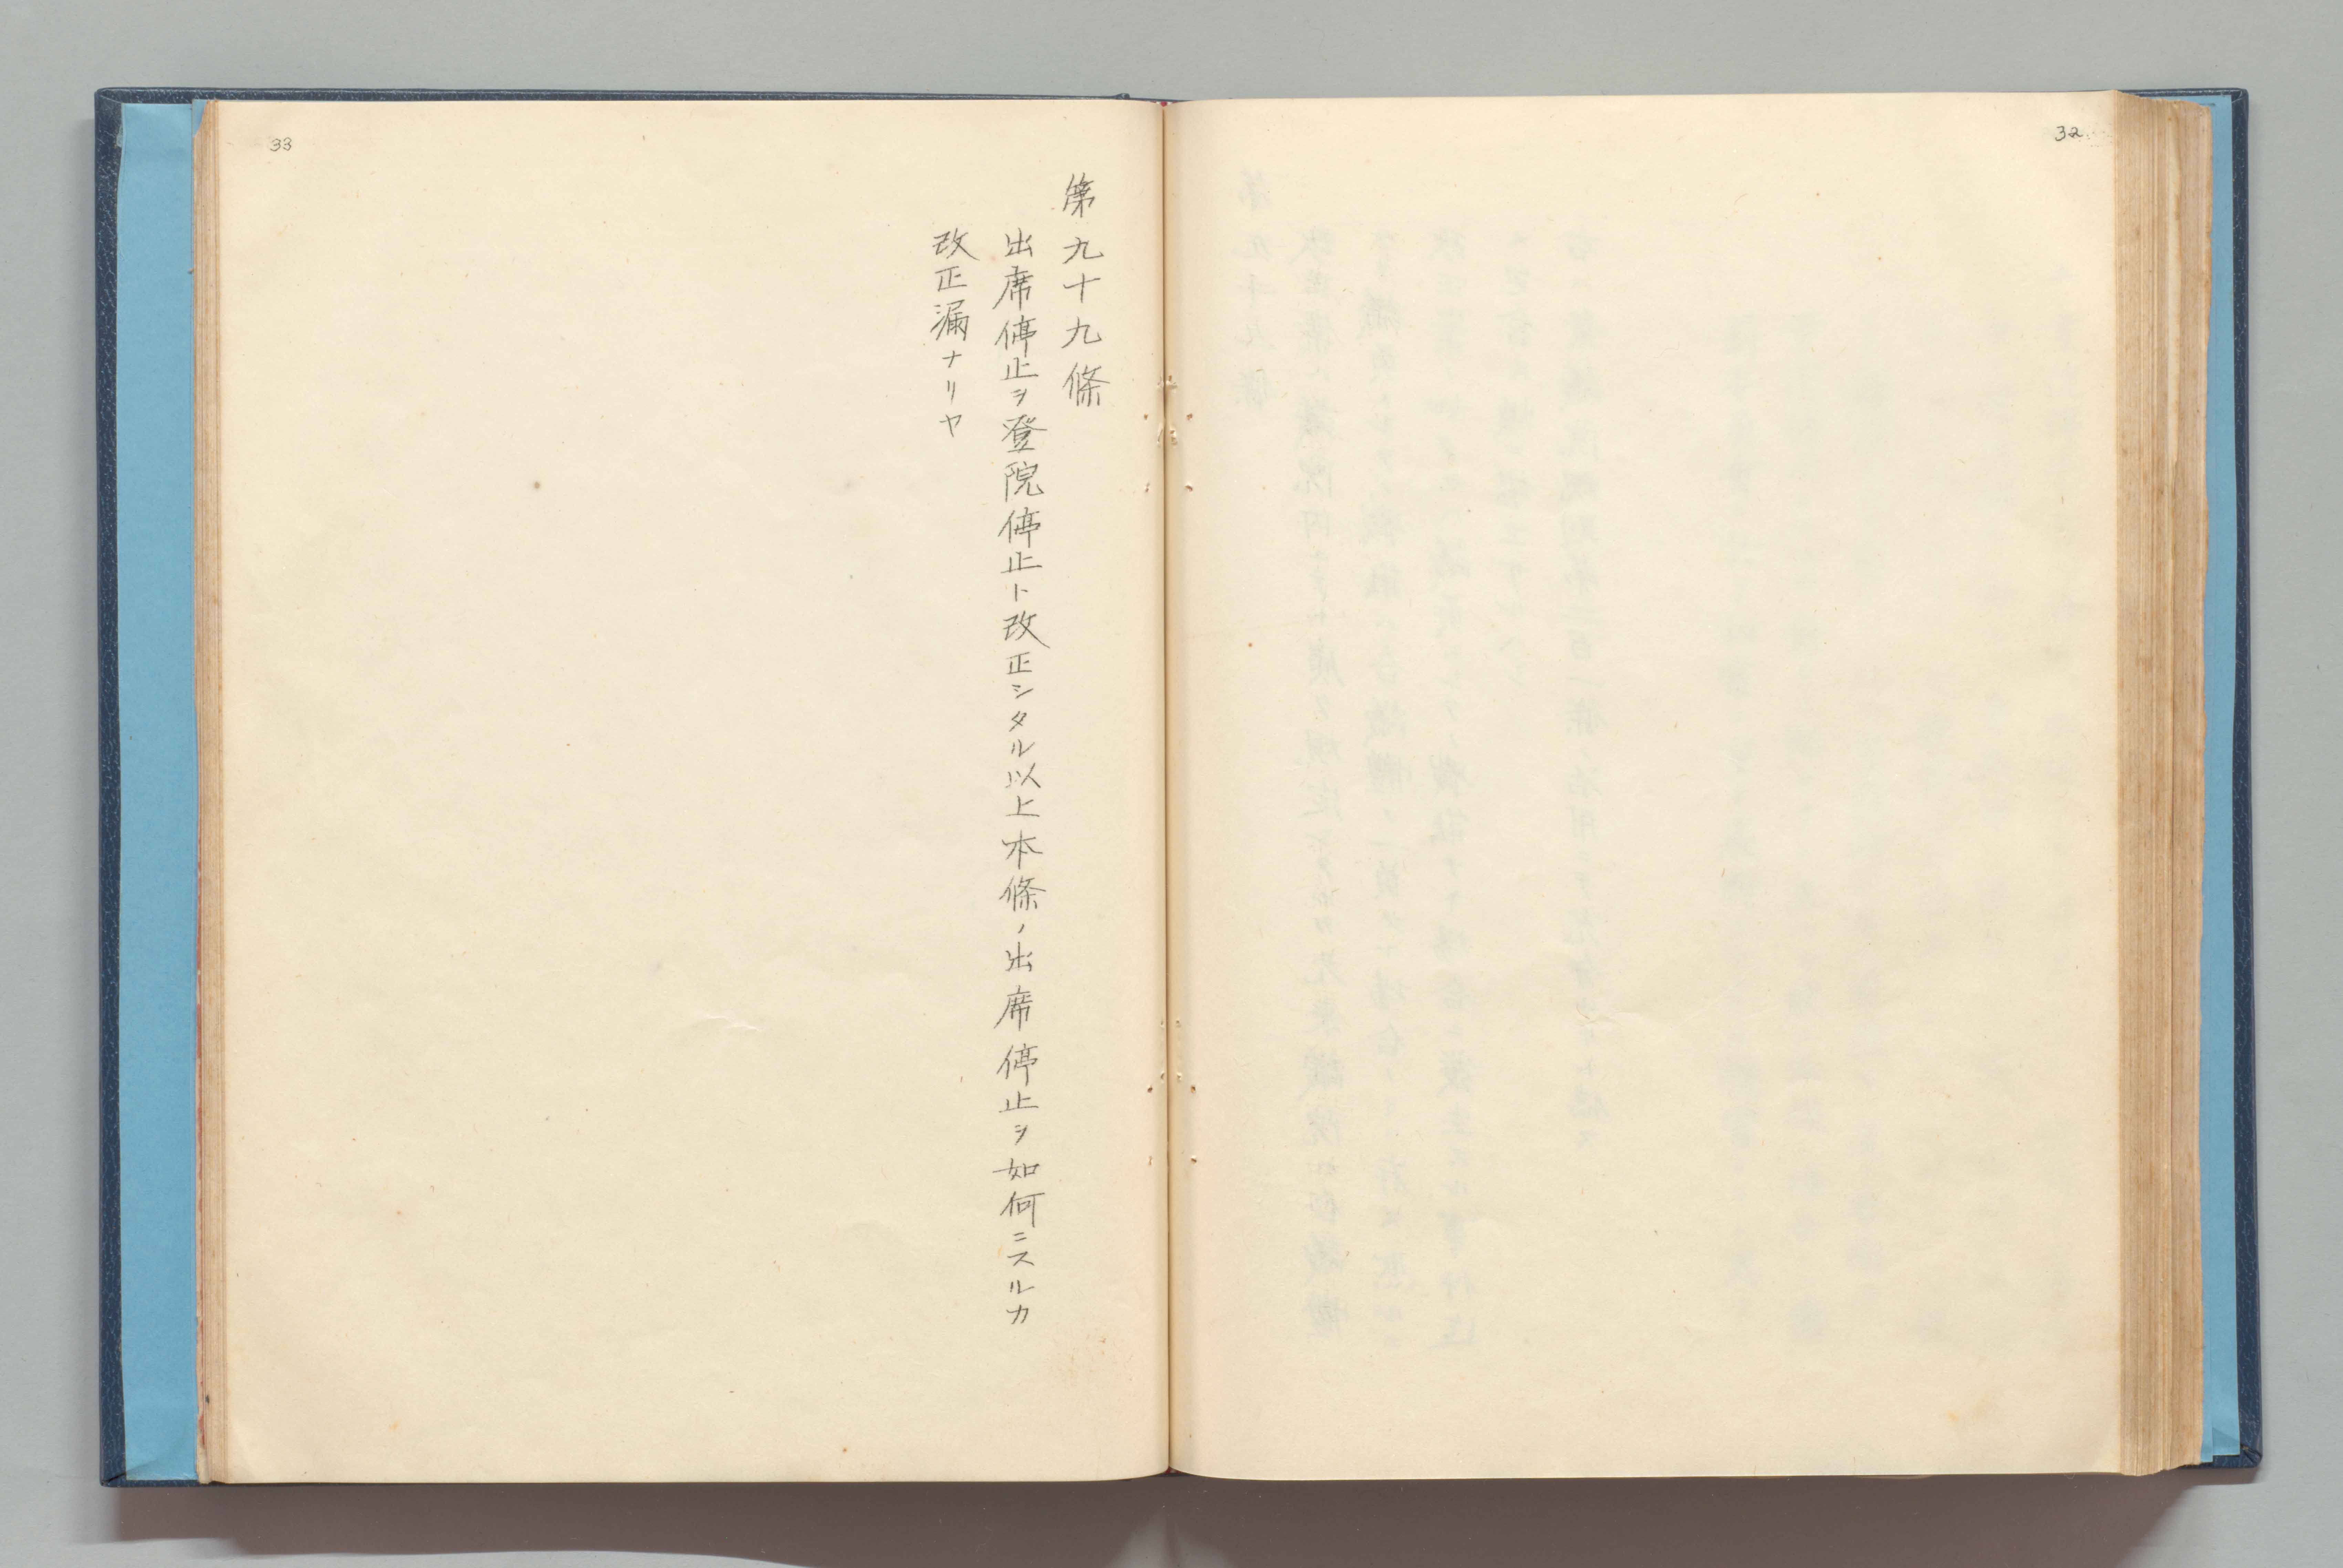 32
33
第九十九條
出席停止ヲ登院停止ト改正シタル以上本條ノ出席停止ヲ如何ニスルカ
改正漏ナリヤ